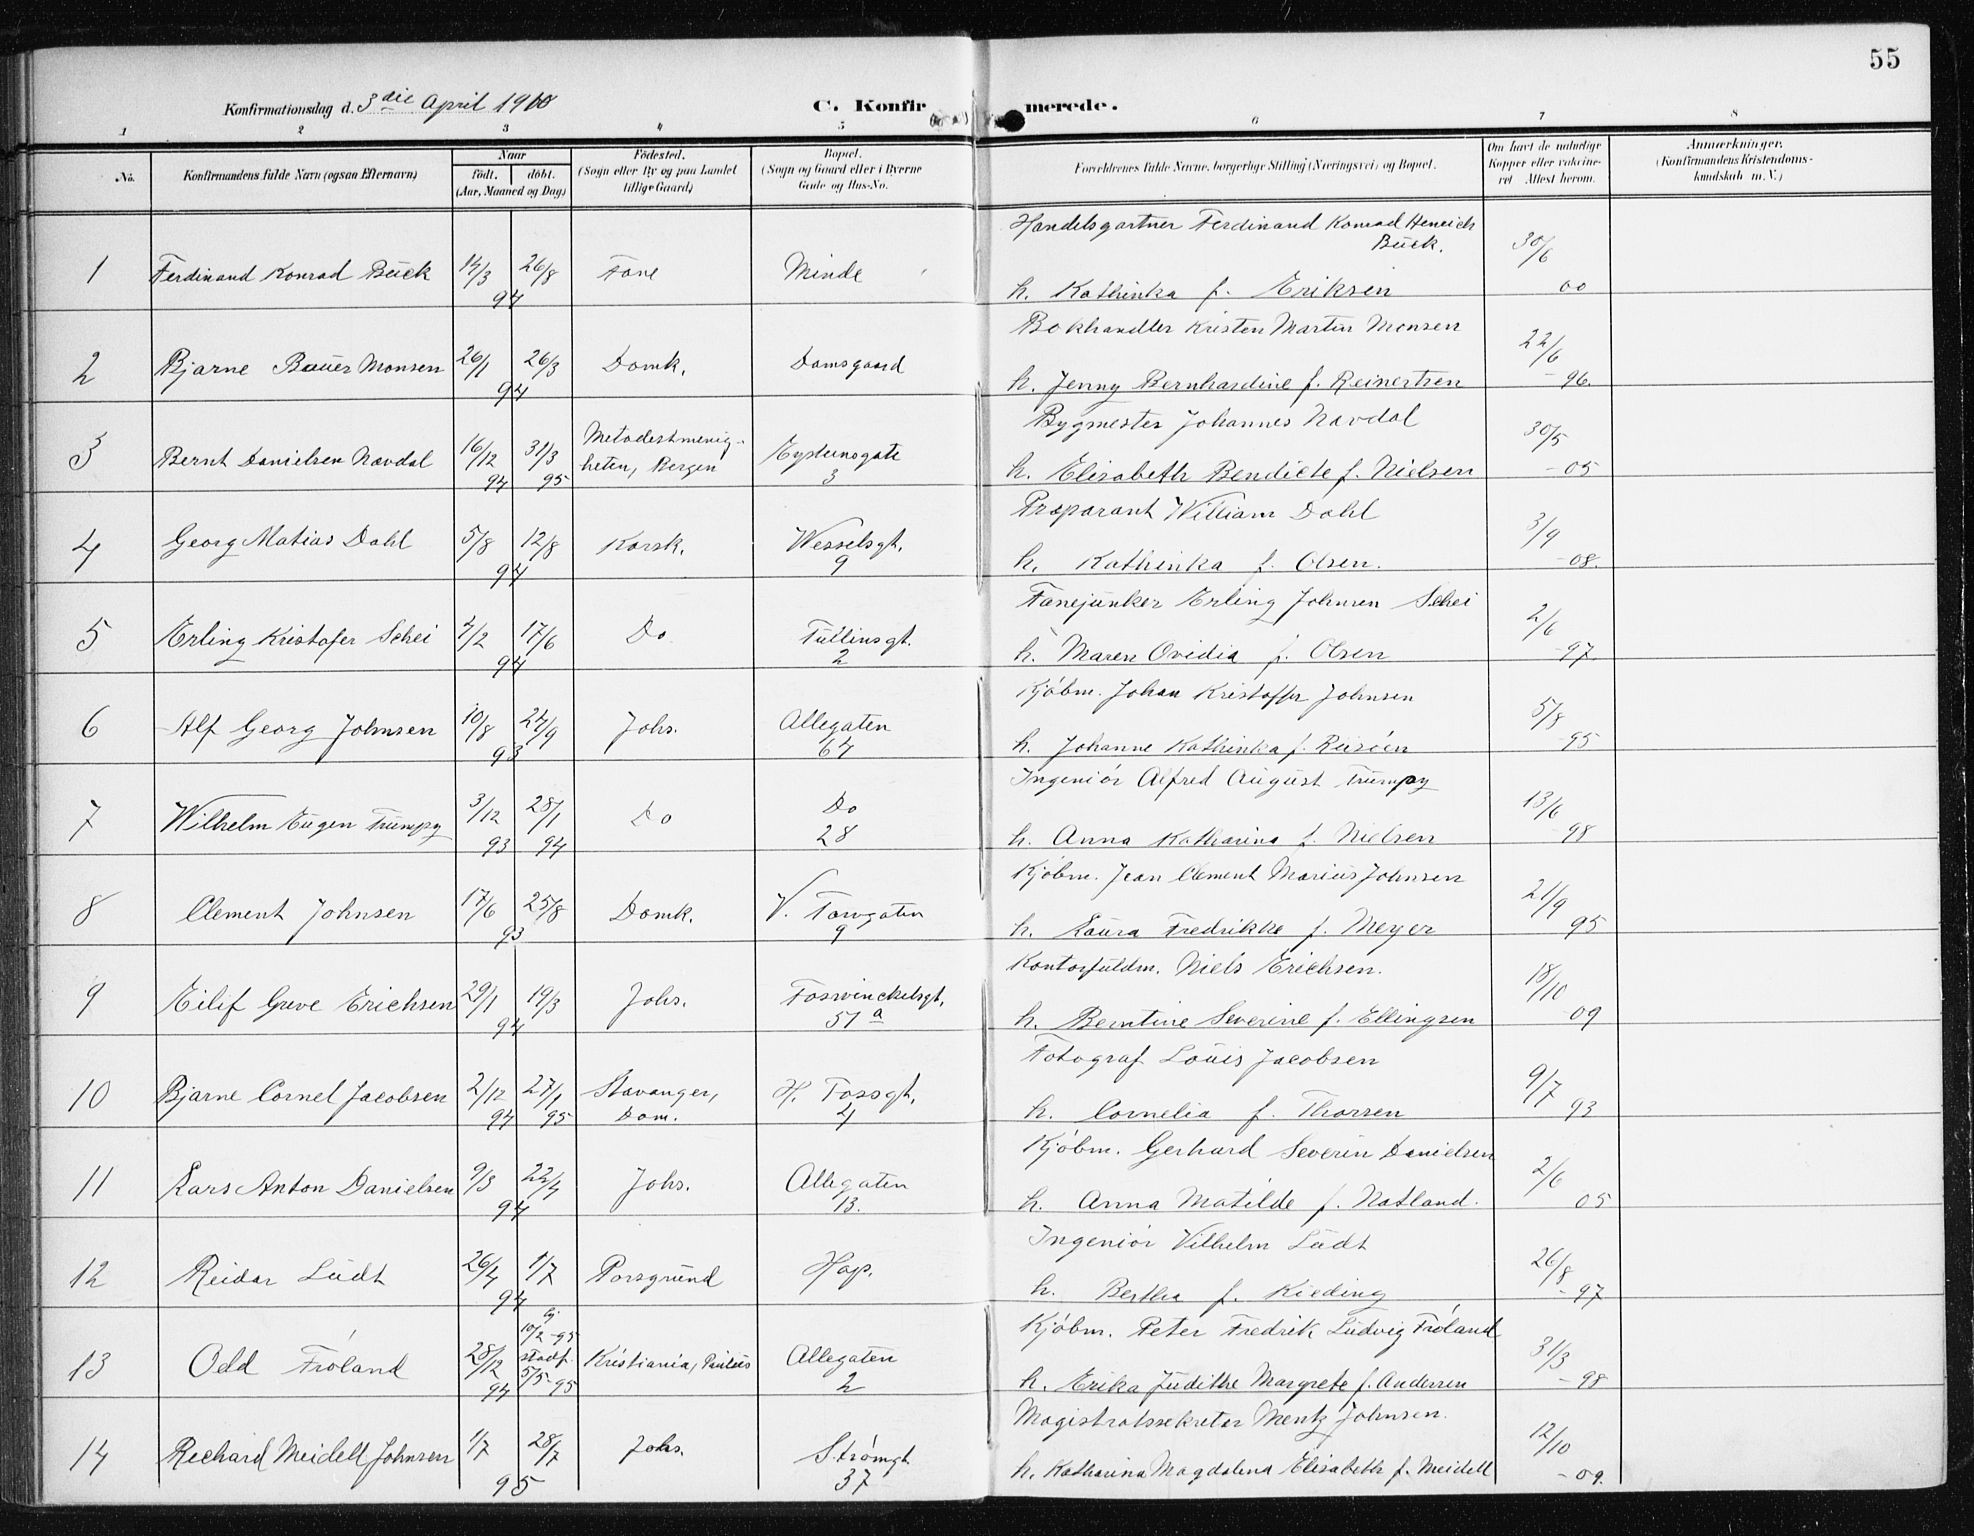 55
Konfirmationsdag d. 3die April 1910
C. Konfirmerede.
1 2 3 4 5 6 7 8
No. Konfirmandens fulde Navn (ogsaa Efternavn)
Naar født. døbt. (Aar, Maaned og Dag)
Fødested. (Sogn eller By og paa Landet tillige Gaard)
Bopæl. (Sogn og Gaard eller i Byerne Gade og Hus-No.
Forældrenes fulde Navne, borgerlige Stilling (Næringsvei) og Bopæl.
Om havt de naturlige Kopper eller vaccineret Attest herom.
Anmærkninger. (Konfirmandens Kristendomskundskab m. V.)
Handelsgartner Ferdinand Konrad Henrich Bück.
1 Ferdinand Konrad Bück 14/3 26/8 94 Fane Minde 30/6 00
h. Kathinka f. Eriksen
Bokhandler Kristen Martin Monsen
2 Bjarne Bauer Monsen 26/1 26/3 94 Domk. Damsgaard 22/6 - 96.
h. Jenny Bernhardine f. Reinertsen
Bygmester Johannes Navdal
3 Bernt Danielsen Navdal 16/12 94 31/3 95 Metodistmenigheten, Bergen Eysteinsgate 3 30/5 - 05
h. Elisabeth Bendicte f. Nielsen
Præparant William Dahl
4 Georg Matias Dahl 5/8 12/8 94 Korsk. Wesselsgt. 9 3/9 - 08.
h. Kathinka f. Olsen.
Fanejunker Erling Johnsen Schei
5 Erling Kristofer Schei 4/2 17/6 94 Do Tullinsgt. 2 2/6 - 97.
h. Maren Ovidia f. Olsen
Kjøbm. Johan Kristoffer Johnsen
6 Alf Georg Johnsen 10/8 24/9 93 Johs. Allegaten 64 5/8 - 95
h. Johanne Kathinka f.
Ingeniør Alfred August Trumpy
7 Wilhelm Eugen Trumpy 3/12 93 28/1 94 Do Do 28 13/6 - 98
h. Anna Katharina f. Nielsen
Kjøbm. Jean Clement Marius Johnsen
8 Clement Johnsen 17/6 25/8 93 Domk. V. Torvgaten 9 21/9 95
h. Laura Fredrikke f. Meyer
Kontorfuldm. Niels Erichsen.
9 Eilif Greve Erichsen 29/1 19/3 94 Johs. Foswinckelsgt. 51a 18/10 - 09
h. Berntine Severine f. Ellingsen
Fotograf Louis Jacobsen
10 Bjarne Cornel Jacobsen 2/12 94 27/1 95 Stavanger, Dom. H. Fossgt. 4 9/7 93
h. Cornelia f. Thorsen
Kjøbm. Gerhard Severin Danielsen
11 Lars Anton Danielsen 9/3 22/4 94 Johs. Allegaten 13. 2/6 05
h. Anna Matilde f. Natland.
Ingeniør Vilhelm Lüdt
12 Reidar Lüdt 26/4 1/7 94 Porsgrund Hop. 26/8 - 97
h. Bertha f. Kieding
Kjøbm. Peter Fredrik Ludvig Frøland
13 Odd Frøland 28/12 94 hj 10/2-95 stadf. 5/5-95 Kristiania, Paulus Allegaten 2 31/3 - 98
h. Erika Judithe Margrete f. Andersen
Magistratssekretær Mentz Johnsen.
14 Rechard Meidell Johnsen 1/7 28/7 95 Johs. Strømgt 37 12/10 - 09.
h. Katharina Magdalena Elisabeth f. Meidell